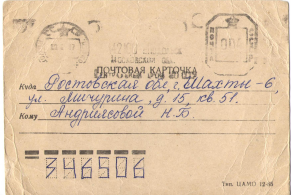 42100
ПОЧТОВАЯ КАРТОЧКА
Куда Ростовская обл, г. Шахты-6,
ул. Мичурина, д. 15, кв. 51.
Кому Андриясовой Н.Б
346506
Тип. ЦАМО 12-85